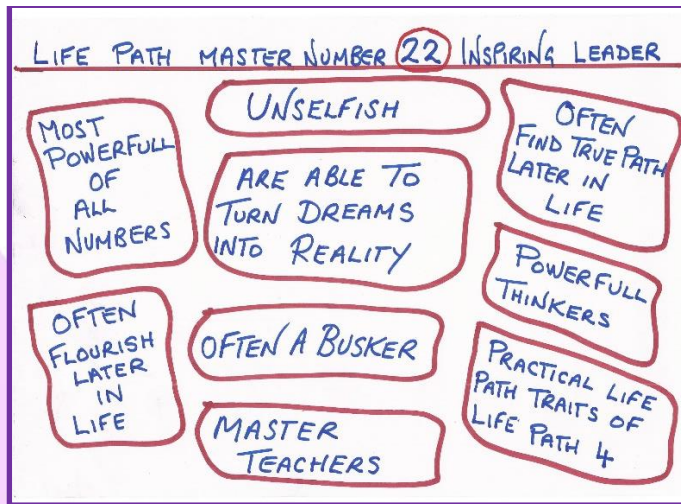 LIFE PATH MASTER NUMBER 22 INSPIRING LEADER
MOST
POWERFULL
OF
ALL
NUMBERS
UNSELFISH
OFTEN
FIND TRUE PATH
LATER IN
LIFE
ARE ABLE TO
TURN DREAMS
INTO REALITY
POWERFULL
THINKERS
OFTEN
FLOURISH
LATER
IN
LIFE
OFTEN A BUSKER
PRACTICAL LIFE
PATH TRAITS OF
LIFE PATH 4
MASTER
TEACHERS